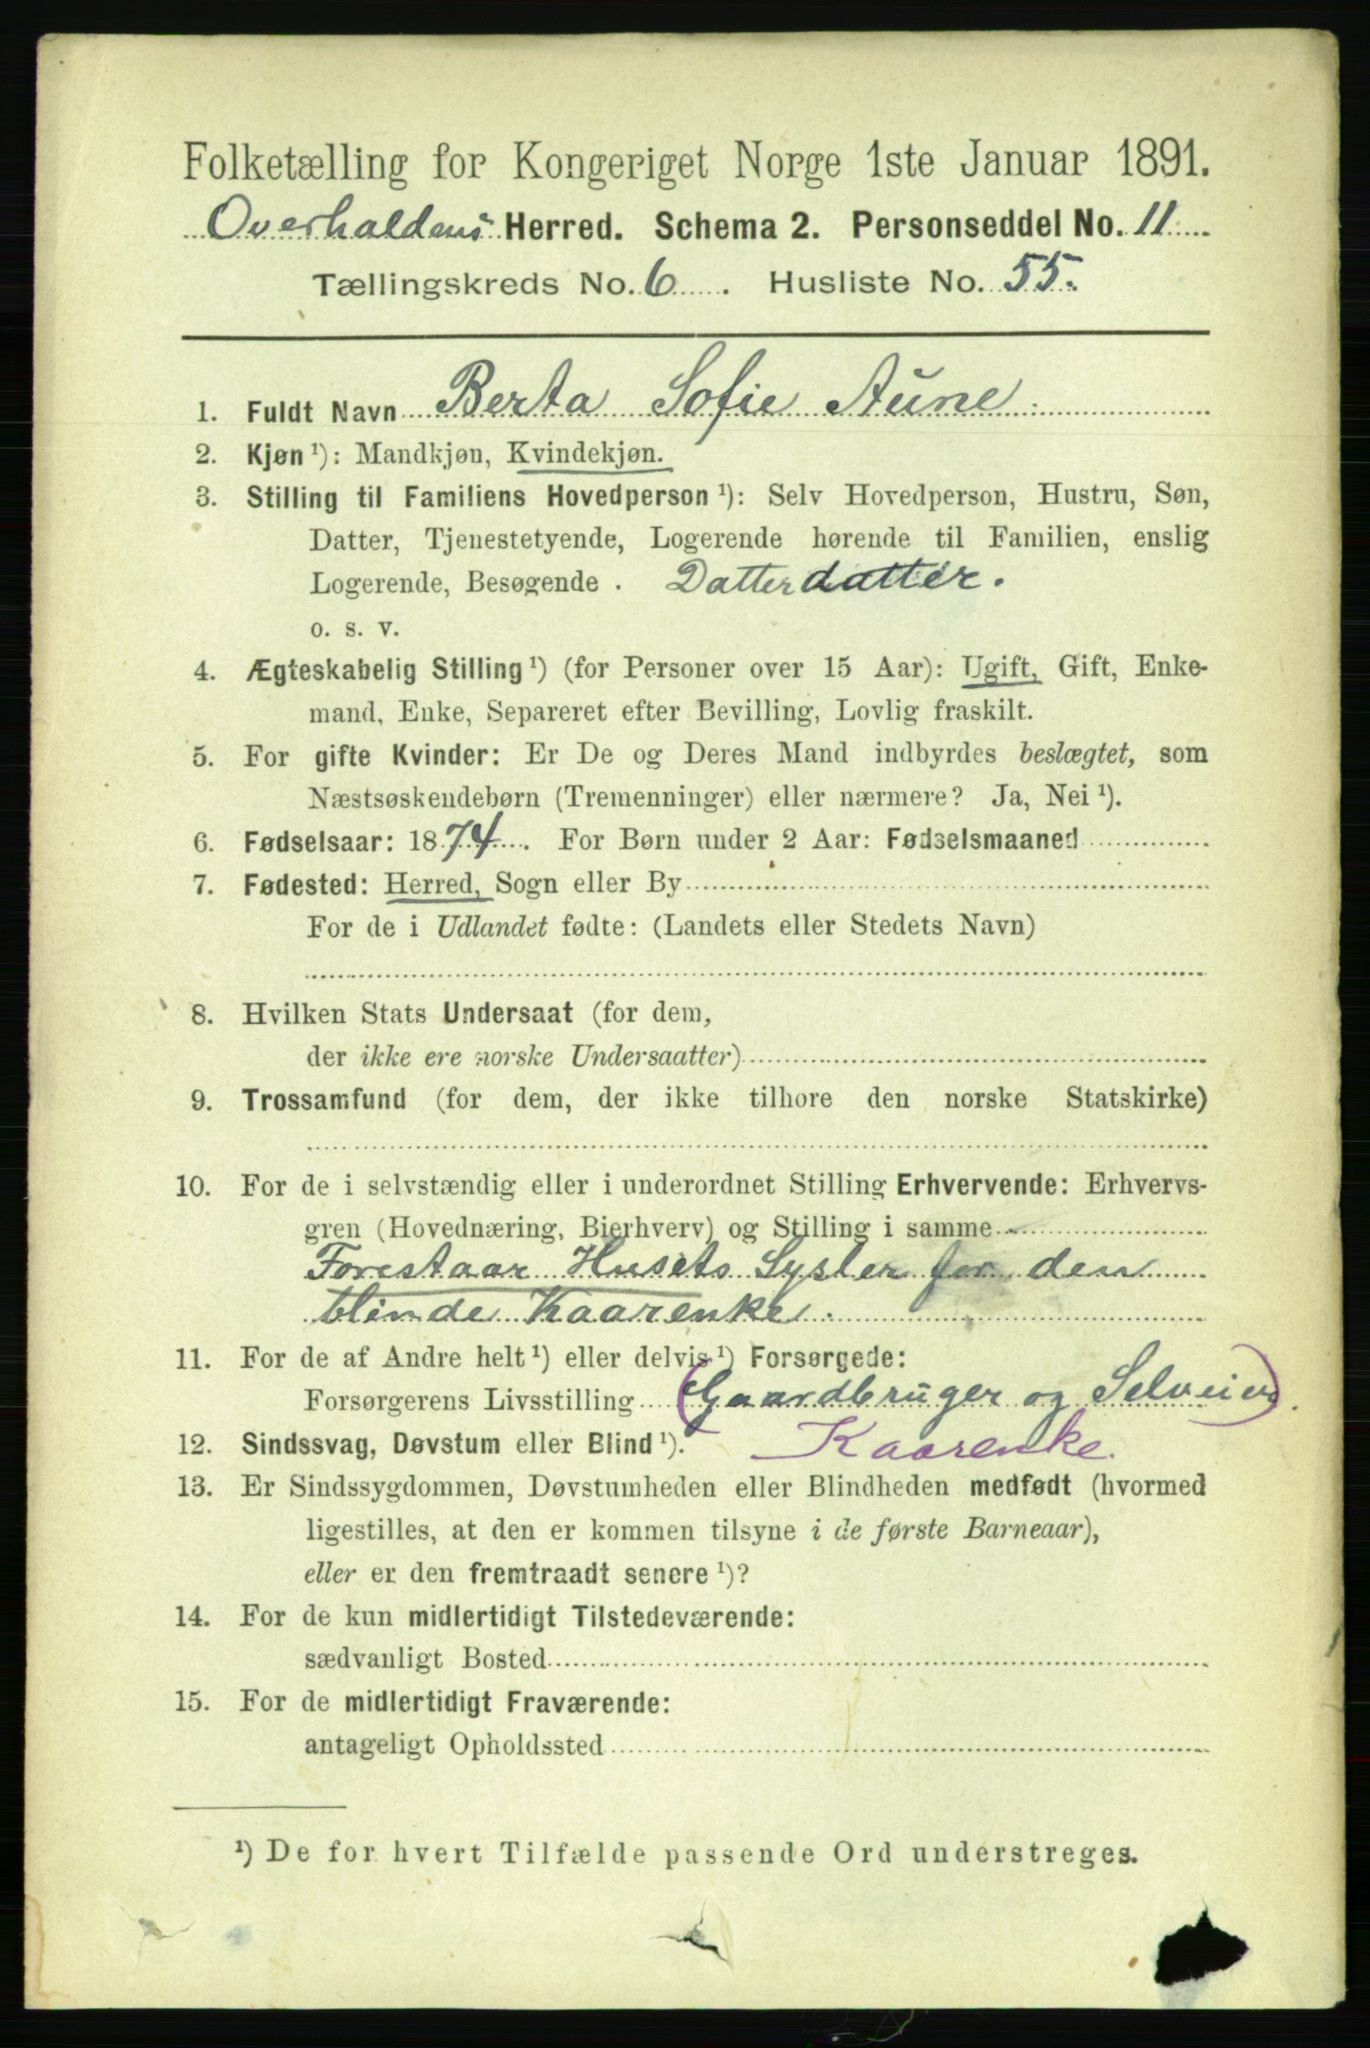 Folketælling for Kongeriget Norge 1ste Januar 1891.
Overhaldens Herred. Schema 2. Personseddel No. 11
Tællingskreds No. 6. Husliste No. 55.
1. Fuldt Navn Berta Sofie Aune
2. Kjøn ¹): Mandkjøn, Kvindekjøn.
3. Stilling til Familiens Hovedperson ¹): Selv Hovedperson, Hustru, Søn,
Datter, Tjenestetyende, Logerende hørende til Familien, enslig
Logerende, Besøgende . Datterdatter.
o. s. v.
4. Ægteskabelig Stilling ¹) (for Personer over 15 Aar): Ugift, Gift, Enke-
mand, Enke, Separeret efter Bevilling, Lovlig fraskilt.
5. For gifte Kvinder: Er De og Deres Mand indbyrdes beslægtet, som
Næstsøskendebørn (Tremenninger) eller nærmere? Ja, Nei ¹).
6. Fødselsaar: 1874. For Børn under 2 Aar: Fødselsmaaned
7. Fødested: Herred, Sogn eller By
For de i Udlandet fødte: (Landets eller Stedets Navn)
8. Hvilken Stats Undersaat (for dem,
der ikke ere norske Undersaatter)
9. Trossamfund (for dem, der ikke tilhøre den norske Statskirke)
10. For de i selvstændig eller i underordnet Stilling Erhvervende: Erhvervs-
gren (Hovednæring, Bierhverv) og Stilling i samme
Forestaar Husets Sysler for den
blinde Kaarenke.
11. For de af Andre helt ¹) eller delvis ¹) Forsørgede:
Forsørgerens Livsstilling (Gaardbruger og Selveier).
12. Sindssvag, Døvstum eller Blind ¹). Kaarenke.
13. Er Sindssygdommen, Døvstumheden eller Blindheden medfødt (hvormed
ligestilles, at den er kommen tilsyne i de første Barneaar),
eller er den fremtraadt senere ¹)?
14. For de kun midlertidigt Tilstedeværende:
sædvanligt Bosted
15. For de midlertidigt Fraværende:
antageligt Opholdssted
¹) De for hvert Tilfælde passende Ord understreges.